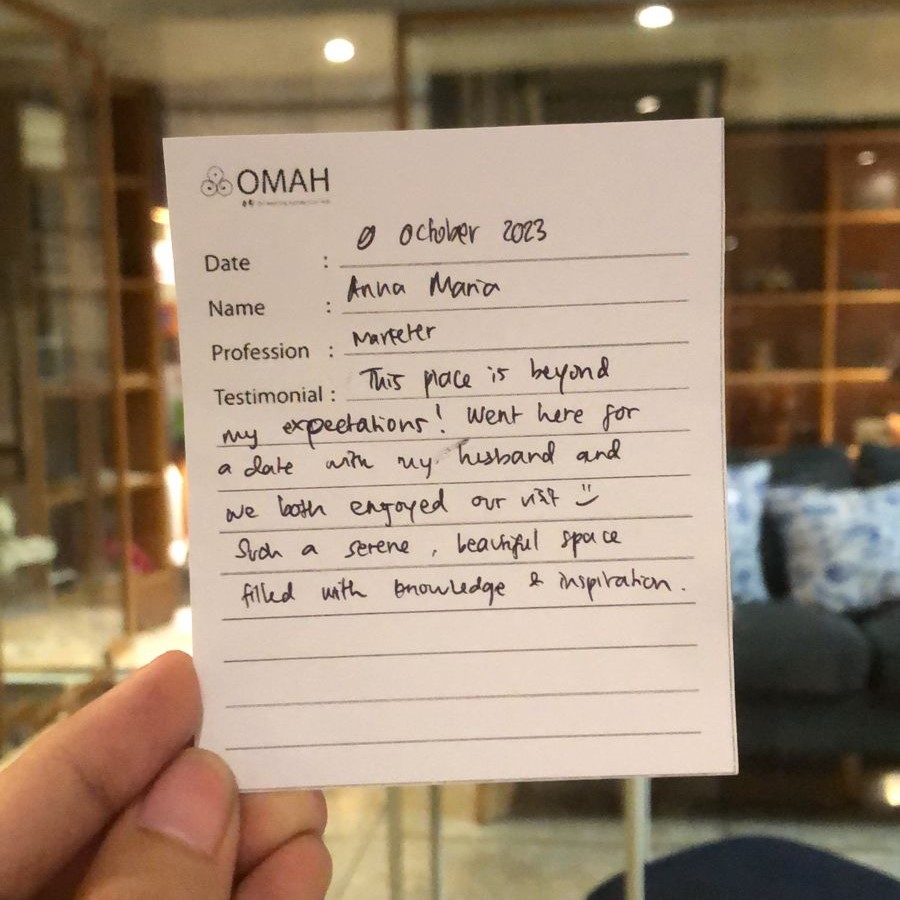 OMAH
October 2023
Date :
Anna Maria
Name :
Marketer
Profession :
This place is beyond
Testimonial :
my expectations! Went here for
a date with my husband and
we both engoyed our visit
Such a serene, beautiful space
filled with knowledge & inspiration.